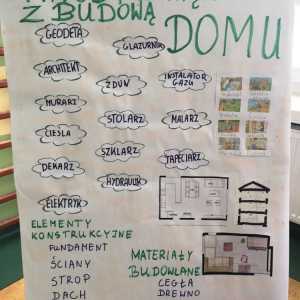 Z BUDOWĄ
DOMU
GEODETA
GLAZURNIK
ARCHITEKT
ZDUN
INSTALATOR
GAZU
MURARZ
STOLARZ
MALARZ
CIEŚLA
SZKLARZ
TAPECIARZ
DEKARZ
HYDRAULIK
ELEKTRYK
ELEMENTY
KONSTRUKCYJNE
FUNDAMENT
ŚCIANY
STROP
DACH
MATERIAŁY
BUDOWLANE
CEGŁA
DREWNO